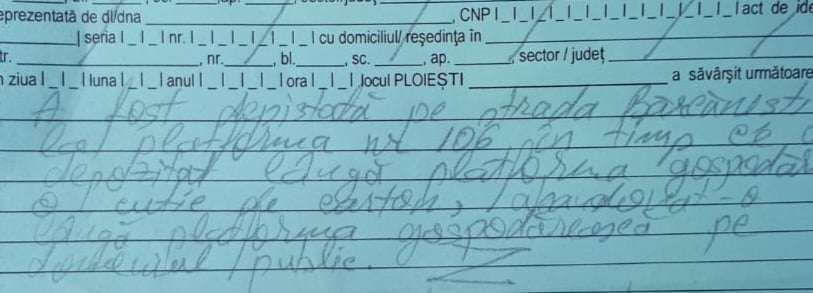 eprezentată de dl/dna ____, CNP |_|_|_|_|_|_|_|_|_|_|_|_|_| act de ide
____| seria |_|_| nr. |_|_|_|_|_|_| cu domiciliul/ reşedinţa în ____
tr. ____, nr. ____, bl. ____, sc. ____, ap. ____, sector / judeţ ____
n ziua |_|_| luna |_|_| anul |_|_|_|_| ora |_|_| locul PLOIEŞTI ____ a săvârşit următoare
A fost depistată pe strada Bărcănești
la platforma nr 106 în timp ce a
depozitat lângă platforma gospodăr
o cutie de carton, abandonat-o
lângă platforma gospodărească pe
domeniul public.